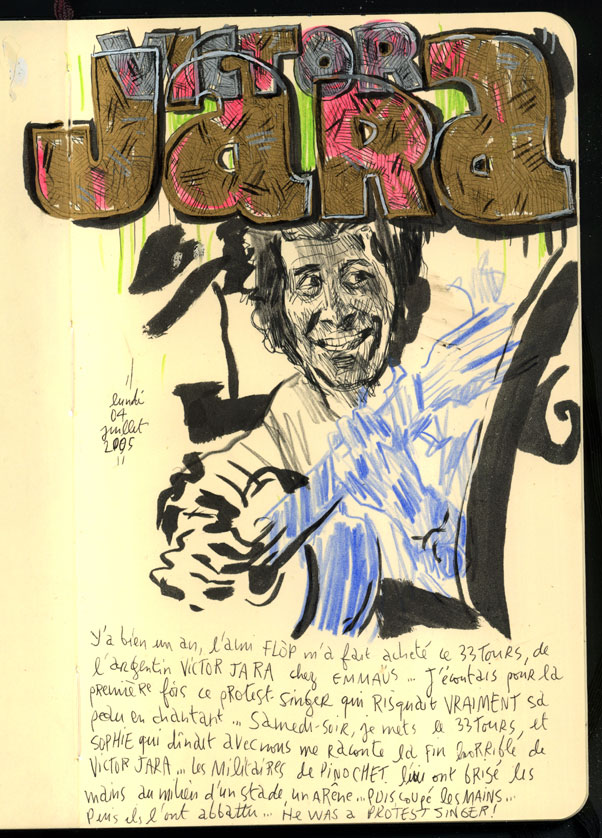 VICTOR
JaRa
lundi
04
juillet
2005
Y'a bien un an, l'ami FLÒP m'a fait acheté ce 33 TOURS, de
l'argentin VICTOR JARA chez EMMAÜS... J'écoutais pour la
première fois ce pRotest singer qui Risquait VRAIMENT sa
peau en chantant... Samedi-soir, je mets le 33 TOURS, et
SOPHIE qui dînait avec nous me raconte la fin horrible de
VICTOR JARA... les Militaires de PINOCHET lui ont brisé les
mains au milien d'un stade, un ARêne... PUIS coupé les MAINS...
Puis ils l'ont abbattu... He was a PROTEST SINGER!